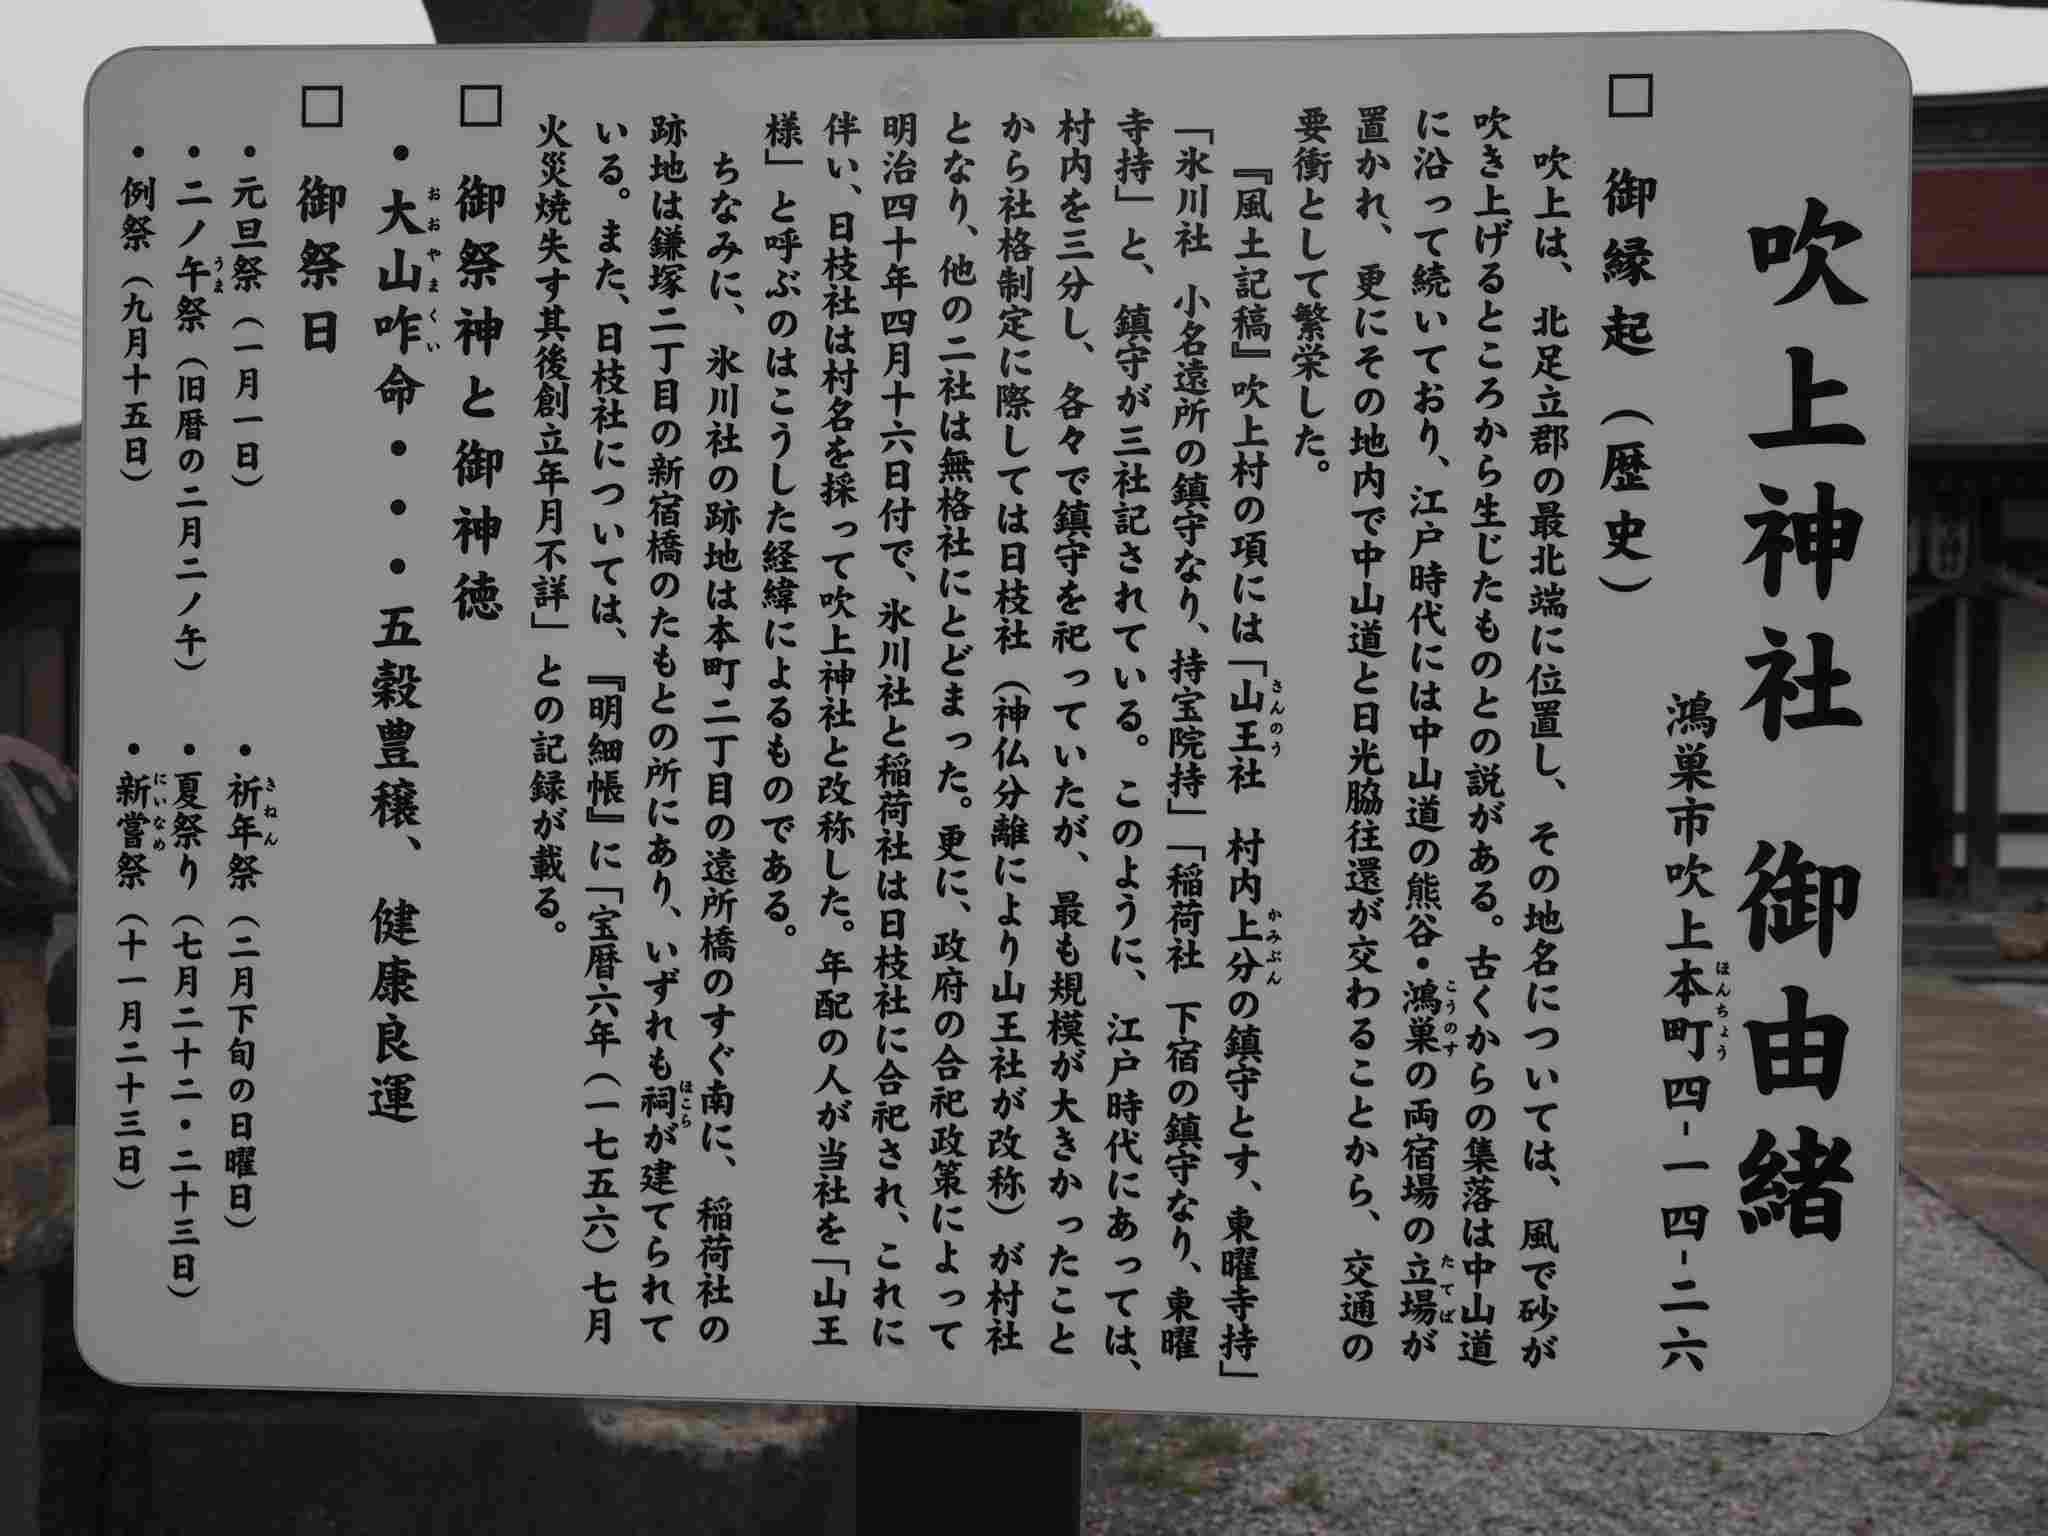 吹上神社 御由緒
鴻巣市吹上本町四-一四-二六
ほんちょう
□ 御縁起(歴史)
吹上は、北足立郡の最北端に位置し、その地名については、風で砂が
吹き上げるところから生じたものとの説がある。古くからの集落は中山道
に沿って続いており、江戸時代には中山道の熊谷・鴻巣の両宿場の立場が
こうのす
たてば
置かれ、更にその地内で中山道と日光脇往還が交わることから、交通の
要衝として繁栄した。
『風土記稿』吹上村の項には「山王社 村内上分の鎮守とす、東曜寺持」
さんのう
かみぶん
「氷川社 小名遠所の鎮守なり、持宝院持」「稲荷社 下宿の鎮守なり、東曜
寺持」と、鎮守が三社記されている。このように、江戸時代にあっては、
村内を三分し、各々で鎮守を祀っていたが、最も規模が大きかったこと
から社格制定に際しては日枝社(神仏分離により山王社が改称)が村社
となり、他の二社は無格社にとどまった。更に、政府の合祀政策によって
明治四十年四月十六日付で、氷川社と稲荷社は日枝社に合祀され、これに
伴い、日枝社は村名を採って吹上神社と改称した。年配の人が当社を「山王
様」と呼ぶのはこうした経緯によるものである。
ちなみに、氷川社の跡地は本町二丁目の遠所橋のすぐ南に、稲荷社の
跡地は鎌塚二丁目の新宿橋のたもとの所にあり、いずれも祠が建てられて
ほこら
いる。また、日枝社については、『明細帳』に「宝暦六年(一七五六)七月
火災焼失す其後創立年月不詳」との記録が載る。
□ 御祭神と御神徳
・大山咋命・・・五穀豊穣、健康良運
おおやまくい
□ 御祭日
・元旦祭(一月一日)
・祈年祭(二月下旬の日曜日)
きねん
・二ノ午祭(旧暦の二月二ノ午)
うま
・夏祭り(七月二十二・二十三日)
・例祭(九月十五日)
・新嘗祭(十一月二十三日)
にいなめ